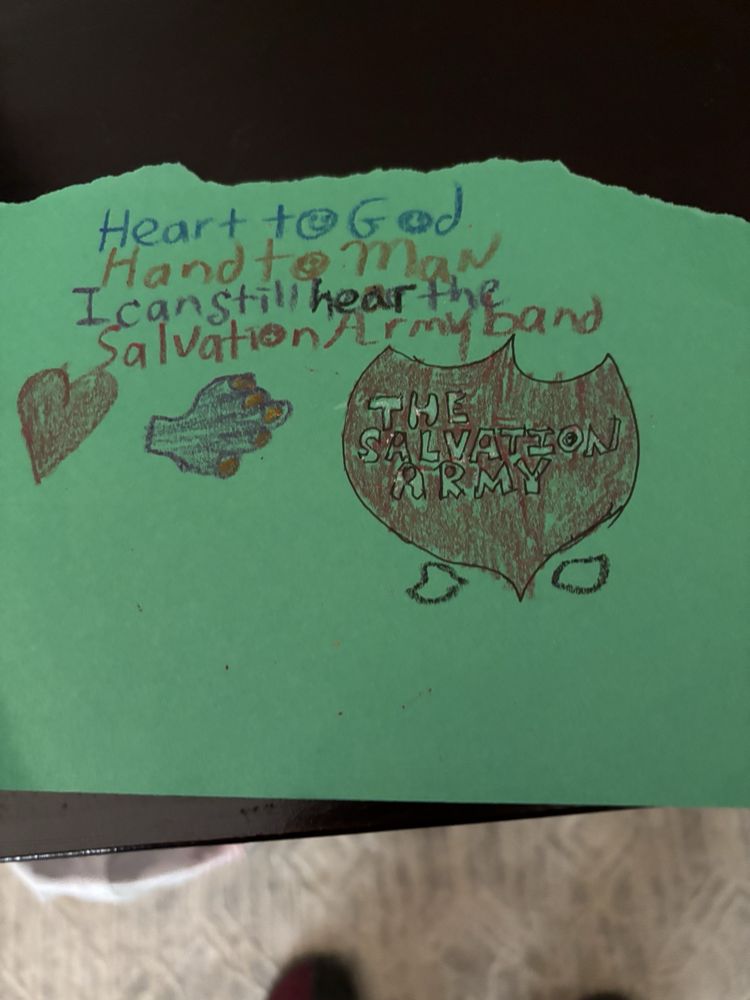 Heart to God
Hand to Man
I can still hear the
Salvation Army band
THE
SALVATION
ARMY